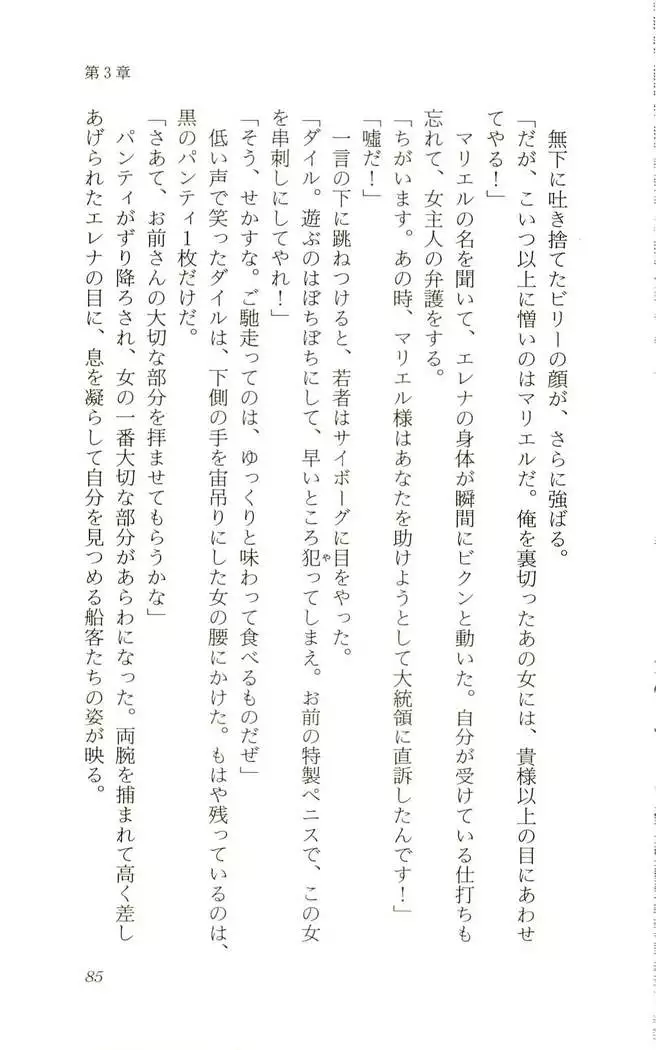 第3章
無下に吐き捨てたビリーの顔が、さらに強ばる。
「だが、こいつ以上に憎いのはマリエルだ。俺を裏切ったあの女には、貴様以上の目にあわせ
てやる！」
マリエルの名を聞いて、エレナの身体が瞬間にビクンと動いた。自分が受けている仕打ちも
忘れて、女主人の弁護をする。
「ちがいます。あの時、マリエル様はあなたを助けようとして大統領に直訴したんです！」
「嘘だ！」
一言の下に跳ねつけると、若者はサイボーグに目をやった。
「ダイル。遊ぶのはぼちぼちにして、早いところ犯ってしまえ。お前の特製ペニスで、この女
を串刺しにしてやれ！」
「そう、せかすな。ご馳走ってのは、ゆっくりと味わって食べるものだぜ」
低い声で笑ったダイルは、下側の手を宙吊りにした女の腰にかけた。もはや残っているのは、
黒のパンティ1枚だけだ。
「さあて、お前さんの大切な部分を拝ませてもらうかな」
パンティがずり降ろされ、女の一番大切な部分があらわになった。両腕を捕まれて高く差し
あげられたエレナの目に、息を凝らして自分を見つめる船客たちの姿が映る。
85